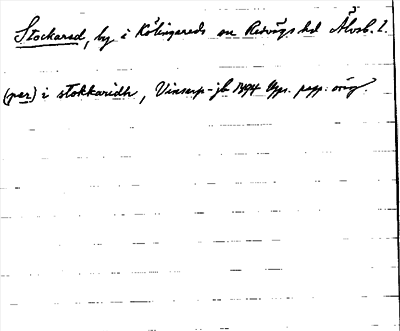 Stockared, by i Kölingareds sn Redvägs hd Älvsb. l.
(per) i stokkaridh, Vinsarp-jb 1394 Ups. papp. orig.